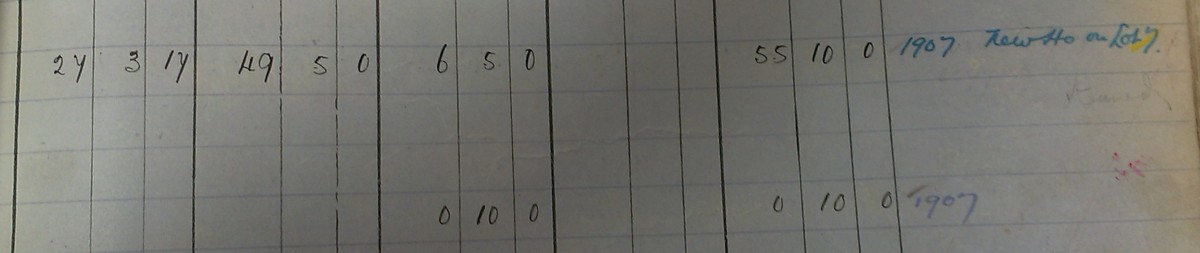 27 3 17 49 5 0 6 5 0 55 10 0 1907 New Ho on Lot 7.
0 10 0 0 10 0 1907